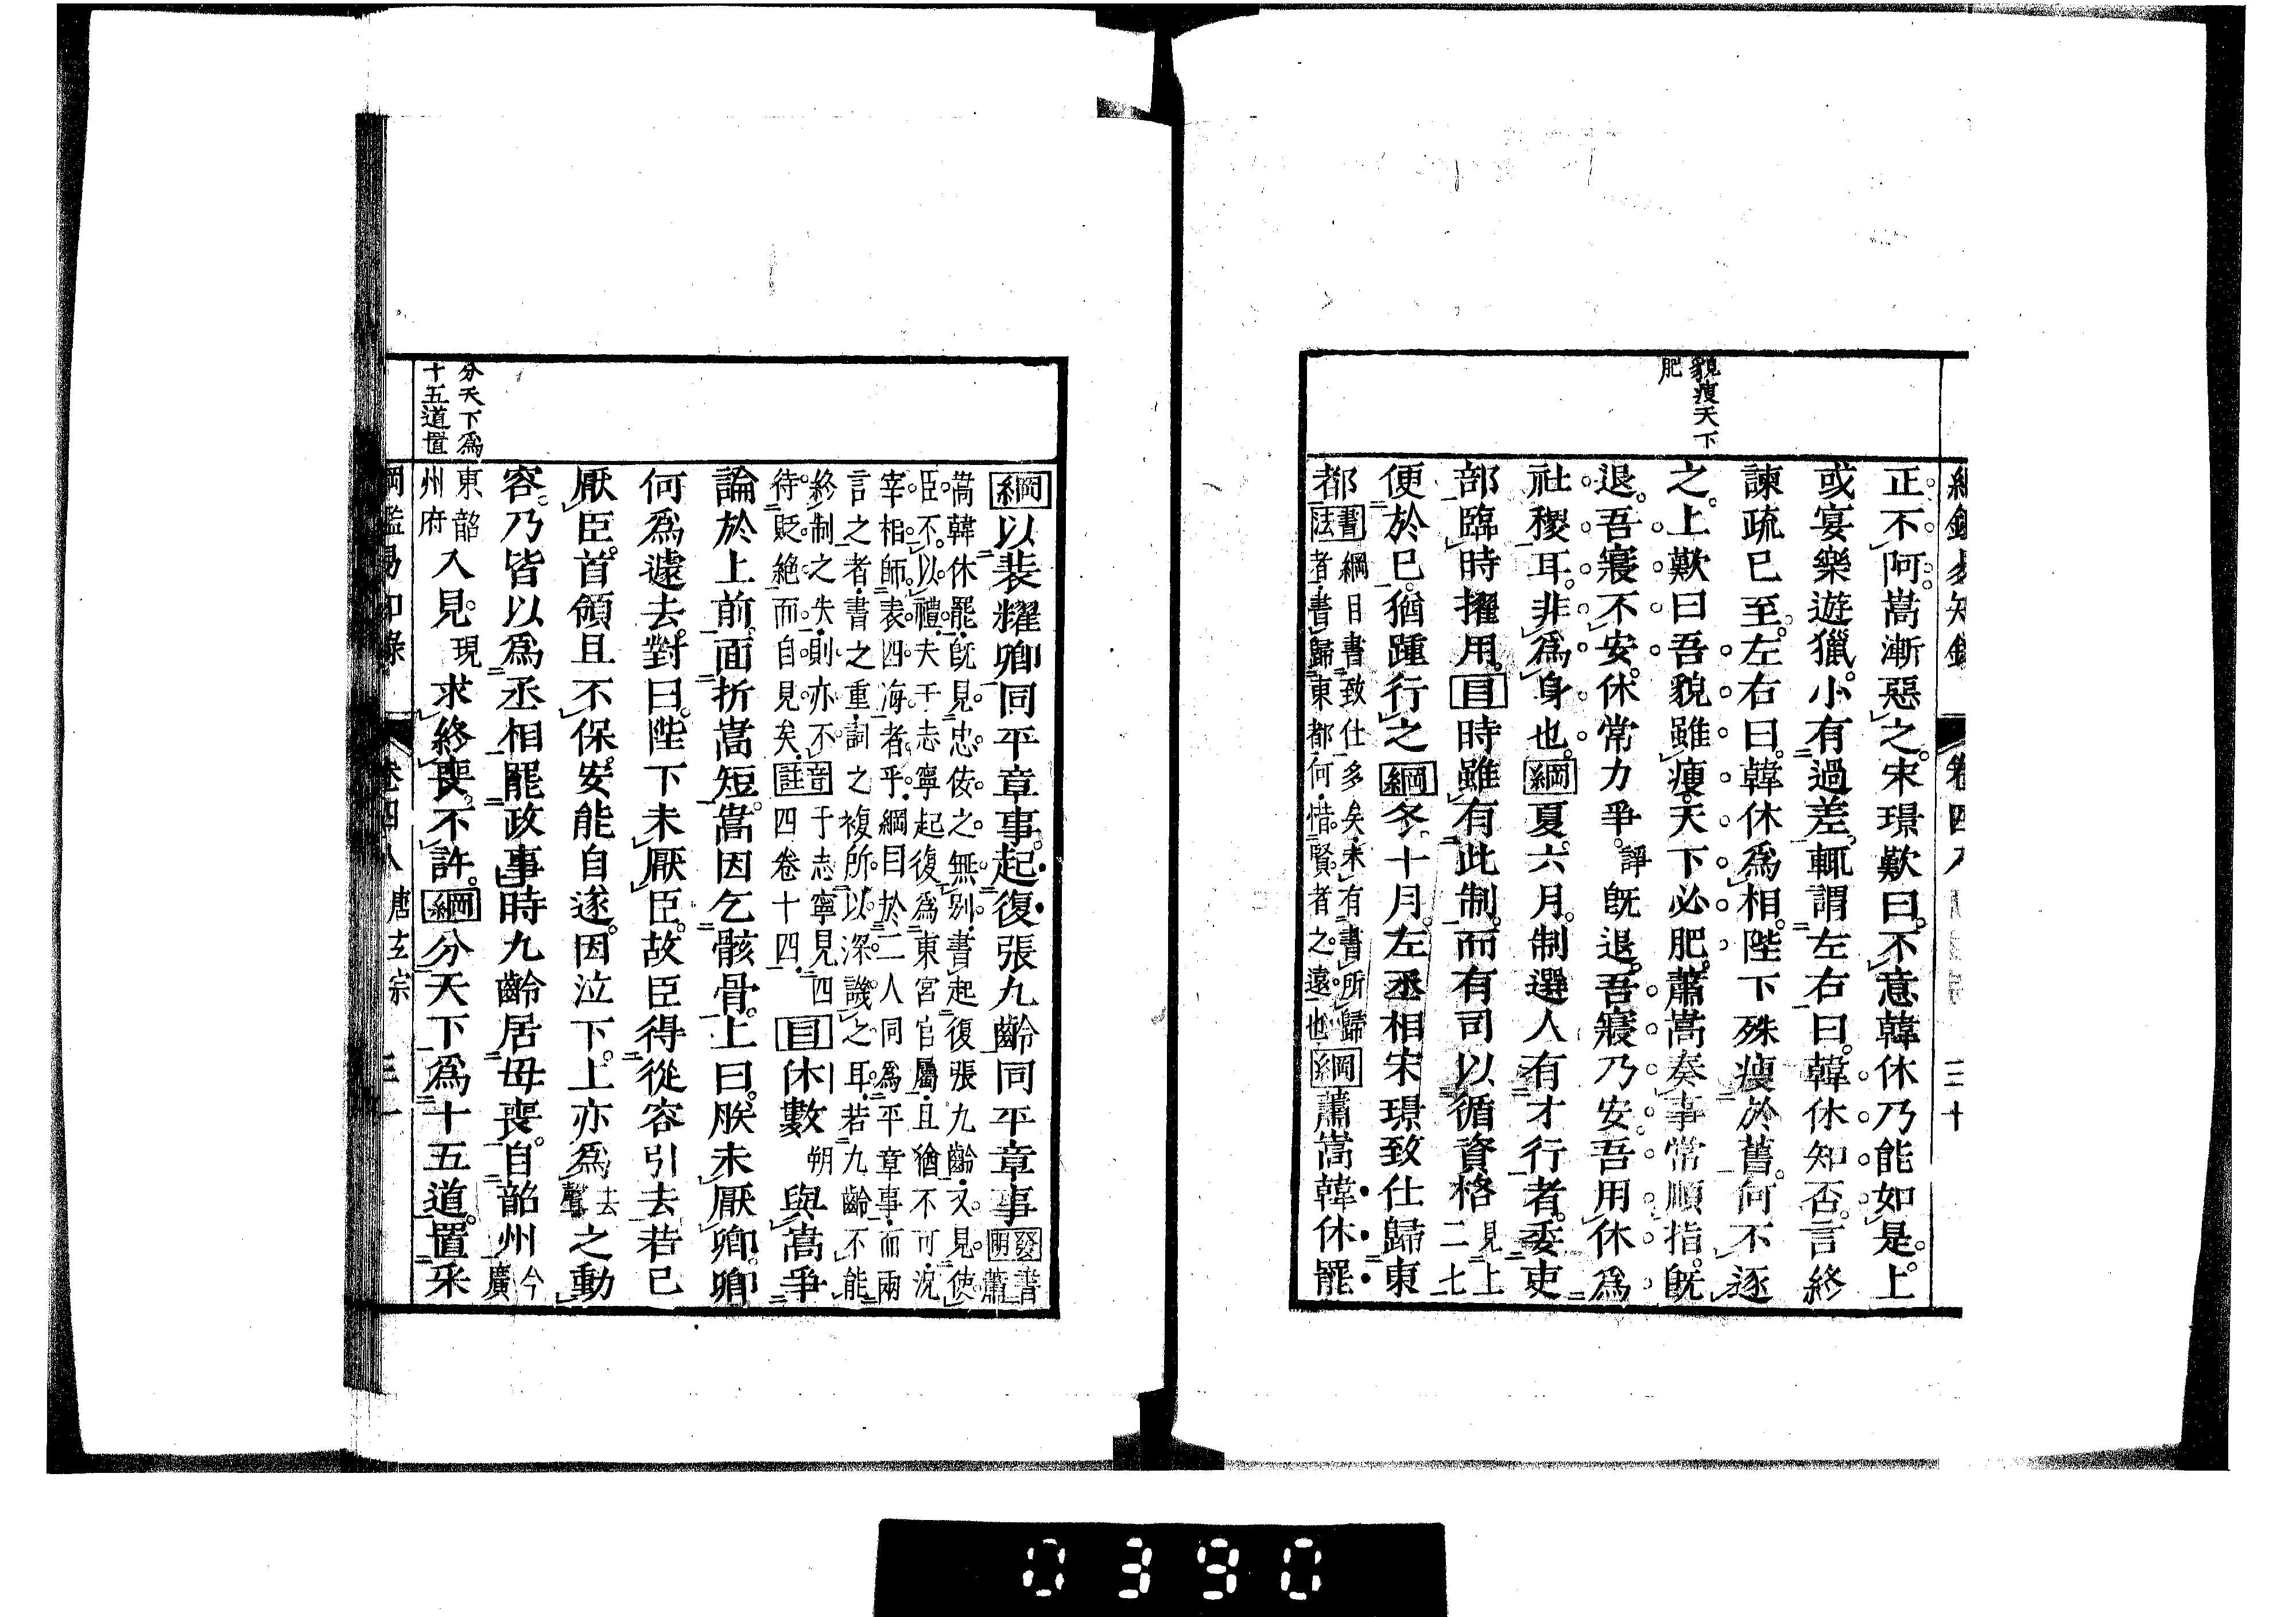 貌瘦天下
肥
正不阿嵩漸惡之宋璟歎曰不意韓休乃能如是上
或宴樂遊獵小有過差輒謂左右曰韓休知否言終
諫疏已至左右曰韓休爲相陛下殊瘦於舊何不逐
之上歎曰吾貌雖瘦天下必肥蕭嵩奏事常順指旣
退吾寢不安休常力爭諍旣退吾寢乃安吾用休爲
社稷耳非爲身也綱夏六月制選人有才行者委吏
部臨時擢用目時雖有此制而有司以循資格見上二七
便於已猶踵行之綱冬十月左丞相宋璟致仕歸東
都書法綱目書致仕多矣未有書所歸者書歸東都何惜賢者之遠也綱蕭嵩韓休罷
綱以裴耀卿同平章事起復張九齡同平章事發明書蕭
嵩韓休罷旣見忠佞之無別書起復張九齡又見使
臣不以禮夫于志寧起復爲東宮官屬且猶不可況
宰相師表四海者乎綱目於二人同爲平章事而兩
言之者書之重詞之複所以深譏之耳若九齡不能
終制之失則亦不待貶絕而自見矣音註于志寧見四四卷十四目休數朔與嵩爭
論於上前面折嵩短嵩因乞骸骨上曰朕未厭卿卿
何爲遽去對曰陛下未厭臣故臣得從容引去若已
厭臣首領且不保安能自遂因泣下上亦爲去聲之動
容乃皆以爲丞相罷政事時九齡居毋喪自韶州今廣
東韶州府入見現求終喪不許綱分天下爲十五道置采
分天下爲
十五道置
卷四八 唐玄宗 三一
0390